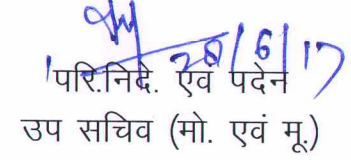 28/6/17
परि.निदे. एवं पदेन
उप सचिव (मो. एवं मू.)